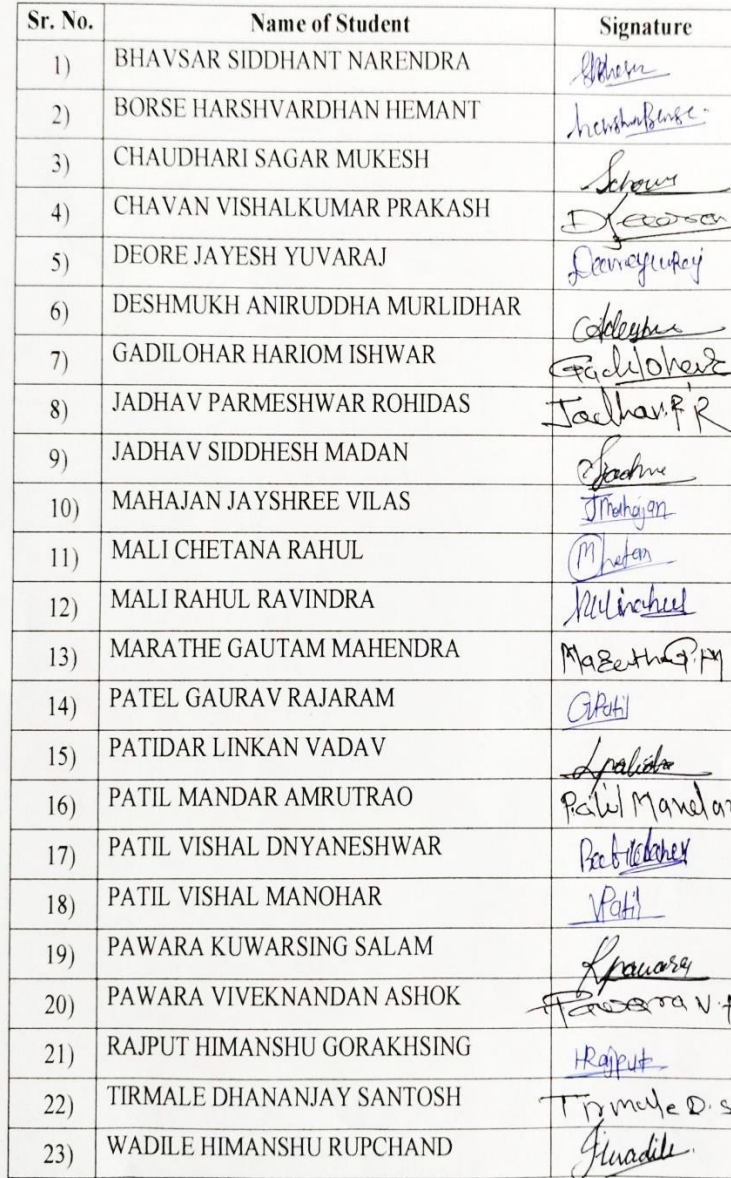 Sr. No. Name of Student Signature
1) BHAVSAR SIDDHANT NARENDRA
2) BORSE HARSHVARDHAN HEMANT
3) CHAUDHARI SAGAR MUKESH
4) CHAVAN VISHALKUMAR PRAKASH
5) DEORE JAYESH YUVARAJ
6) DESHMUKH ANIRUDDHA MURLIDHAR
7) GADILOHAR HARIOM ISHWAR
8) JADHAV PARMESHWAR ROHIDAS Jadhav.P R
9) JADHAV SIDDHESH MADAN
10) MAHAJAN JAYSHREE VILAS JMahajan
11) MALI CHETANA RAHUL
12) MALI RAHUL RAVINDRA
13) MARATHE GAUTAM MAHENDRA
14) PATEL GAURAV RAJARAM GPatil
15) PATIDAR LINKAN VADAV
16) PATIL MANDAR AMRUTRAO Patil Mandar
17) PATIL VISHAL DNYANESHWAR
18) PATIL VISHAL MANOHAR VPatil
19) PAWARA KUWARSING SALAM
20) PAWARA VIVEKNANDAN ASHOK
21) RAJPUT HIMANSHU GORAKHSING HRajput
22) TIRMALE DHANANJAY SANTOSH Tirmale D. S
23) WADILE HIMANSHU RUPCHAND